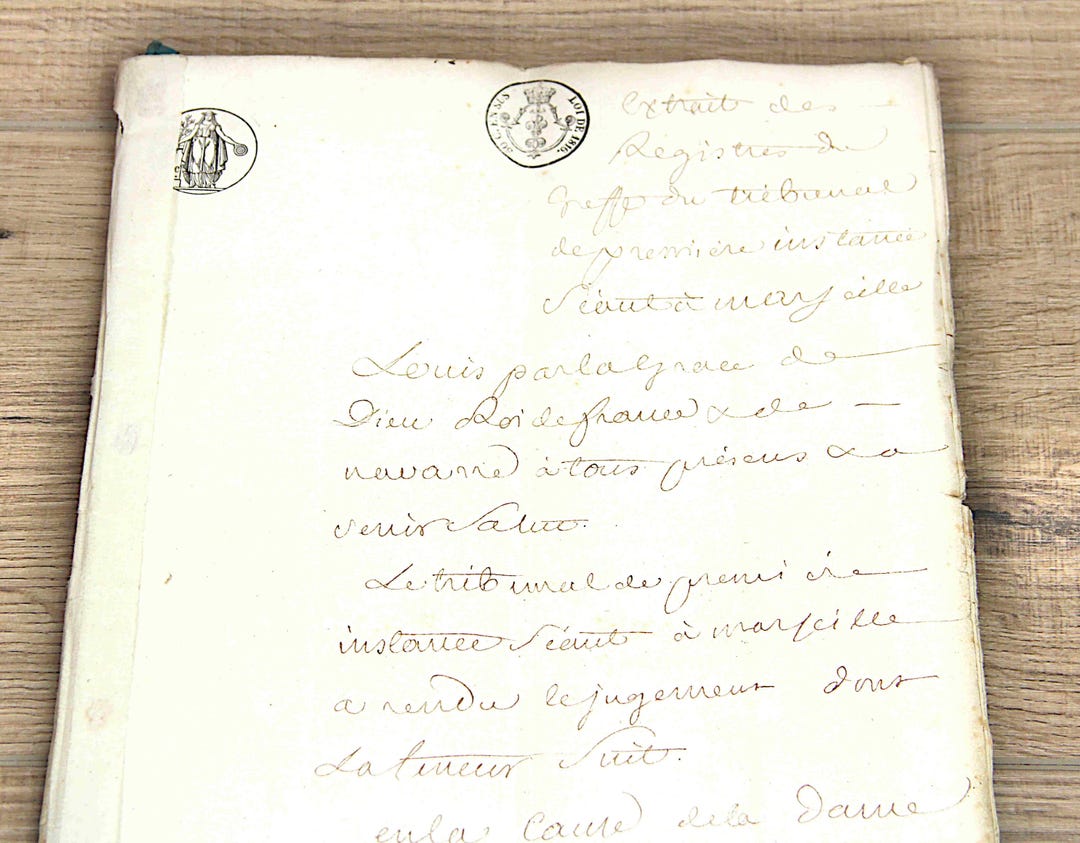 50 C. EN SUS
LOI DE 1816.
extrait des
Régistres du
Greffe du tribunal
de premiere instance
Séant à marseille
Louis par la Grace de
Dieu Roi de france & de
navarre à tous présens & a
venir Salut.
Le tribunal de premiére
instance Séant à marseille
a rendu le jugement dont
La teneur Suit.
en la Cause de la Dame